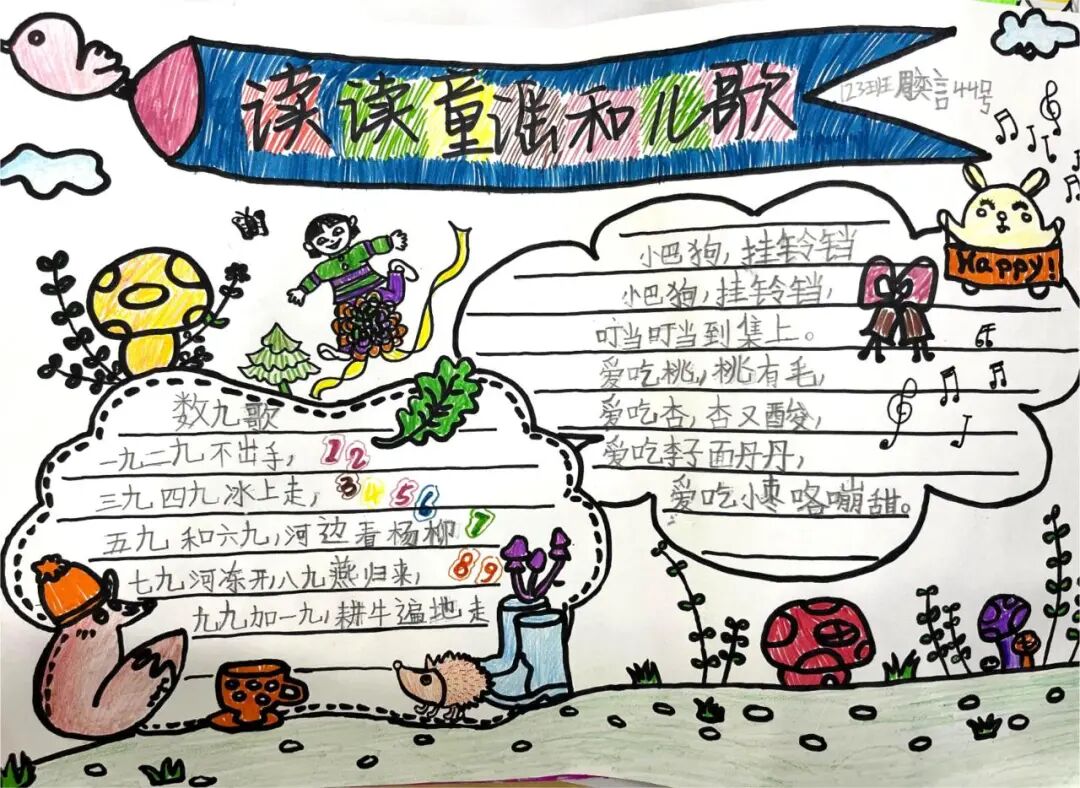 读读童谣和儿歌
123班 周奕言 44号
数九歌
一九二九不出手，
三九四九冰上走，
五九和六九，河边看杨柳
七九河冻开，八九燕归来，
九九加一九，耕牛遍地走
1 2
3 4 5 6
7
8 9
小巴狗，挂铃铛
小巴狗，挂铃铛，
叮当叮当到集上。
爱吃桃，桃有毛，
爱吃杏，杏又酸，
爱吃李子面丹丹，
爱吃小枣咯嘣甜。
Happy!